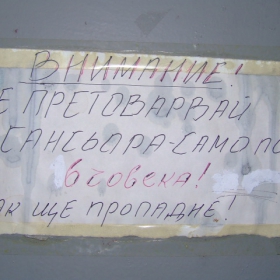 ВНИМАНИЕ!
Е ПРЕТОВАРВАЙ
САНСЬОРА-САМО ПО
6 човека!
АК ЩЕ ПРОПАДНЕ!